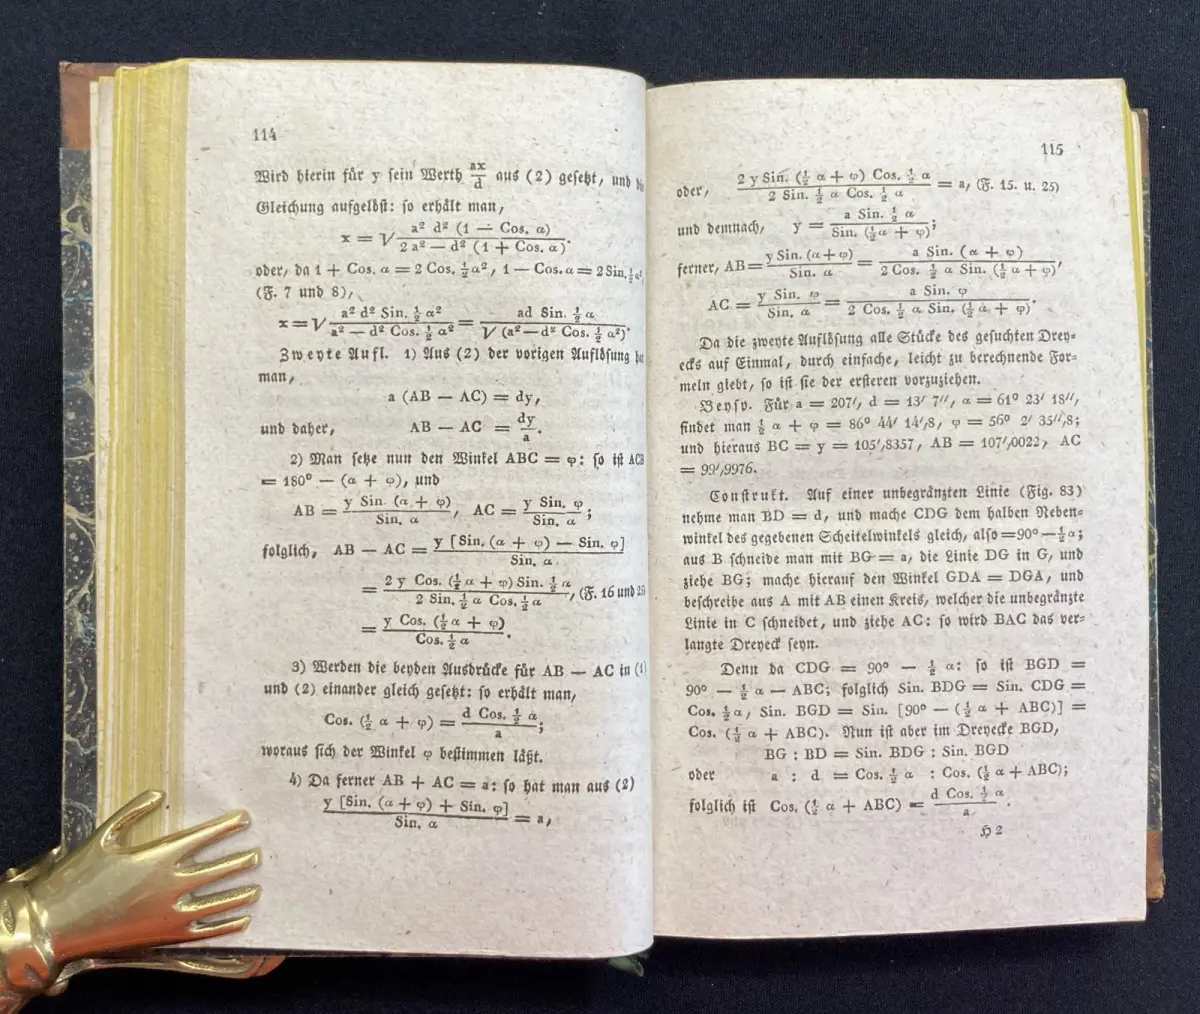 114
Wird hierin für y sein Werth ax/d aus (2) gesetzt, und
Gleichung aufgelöst: so erhält man,
x = √ a² d² (1 — Cos. α) / 2 a² — d² (1 + Cos. α).
oder, da 1 + Cos. α = 2 Cos. ½ α², 1 — Cos. α = 2 Sin. ½ α²,
(F. 7 und 8),
x = √ a² d² Sin. ½ α² / a² — d² Cos. ½ α² = ad Sin. ½ α / √ (a² — d² Cos. ½ α²).
Zweyte Aufl. 1) Aus (2) der vorigen Auflösung
man,
a (AB — AC) = dy,
und daher, AB — AC = dy/a.
2) Man setze nun den Winkel ABC = φ: so ist ACB
= 180° — (α + φ), und
AB = y Sin. (α + φ) / Sin. α, AC = y Sin. φ / Sin. α;
folglich, AB — AC = y [Sin. (α + φ) — Sin. φ] / Sin. α
= 2 y Cos. (½ α + φ) Sin. ½ α / 2 Sin. ½ α Cos. ½ α, (F. 16 und 25)
= y Cos. (½ α + φ) / Cos. ½ α.
3) Werden die beyden Ausdrücke für AB — AC in (1)
und (2) einander gleich gesetzt: so erhält man,
Cos. (½ α + φ) = d Cos. ½ α / a;
woraus sich der Winkel φ bestimmen läßt.
4) Da ferner AB + AC = a: so hat man aus (2)
y [Sin. (α + φ) + Sin. φ] / Sin. α = a,
115
oder, 2 y Sin. (½ α + φ) Cos. ½ α / 2 Sin. ½ α Cos. ½ α = a, (F. 15. u. 25)
und demnach, y = a Sin. ½ α / Sin. (½ α + φ);
ferner, AB = y Sin. (α + φ) / Sin. α = a Sin. (α + φ) / 2 Cos. ½ α Sin. (½ α + φ),
AC = y Sin. φ / Sin. α = a Sin. φ / 2 Cos. ½ α Sin. (½ α + φ).
Da die zweyte Auflösung alle Stücke des gesuchten Drey-
ecks auf Einmal, durch einfache, leicht zu berechnende For-
meln giebt, so ist sie der ersteren vorzuziehen.
Beysp. Für a = 207′, d = 13′ 7″, α = 61° 23′ 18″,
findet man ½ α + φ = 86° 44′ 14″,8, φ = 56° 2′ 35″,8;
und hieraus BC = y = 105′,8357, AB = 107′,0022, AC
= 99′,9976.
Construkt. Auf einer unbegränzten Linie (Fig. 83)
nehme man BD = d, und mache CDG dem halben Neben-
winkel des gegebenen Scheitelwinkels gleich, also = 90° — ½ α;
aus B schneide man mit BG = a, die Linie DG in G, und
ziehe BG; mache hierauf den Winkel GDA = DGA, und
beschreibe aus A mit AB einen Kreis, welcher die unbegränzte
Linie in C schneidet, und ziehe AC: so wird BAC das ver-
langte Dreyeck seyn.
Denn da CDG = 90° — ½ α: so ist BGD =
90° — ½ α — ABC; folglich Sin. BDG = Sin. CDG =
Cos. ½ α, Sin. BGD = Sin. [90° — (½ α + ABC)] =
Cos. (½ α + ABC). Nun ist aber im Dreyecke BGD,
BG : BD = Sin. BDG : Sin. BGD
oder a : d = Cos. ½ α : Cos. (½ α + ABC);
folglich ist Cos. (½ α + ABC) = d Cos. ½ α / a.
H 2